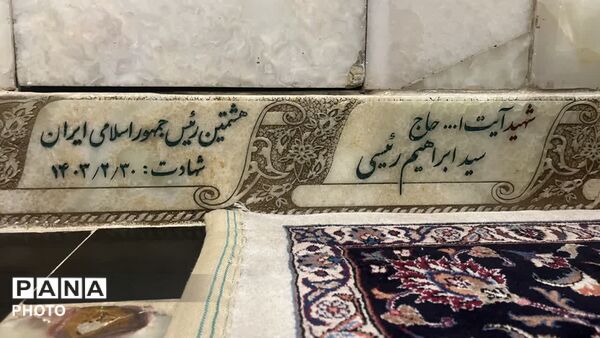 شهید آیت ا... حاج
سید ابراهیم رئیسی
هشتمین رئیس جمهور اسلامی ایران
شهادت: ۱۴۰۳/۲/۳۰
PANA
PHOTO